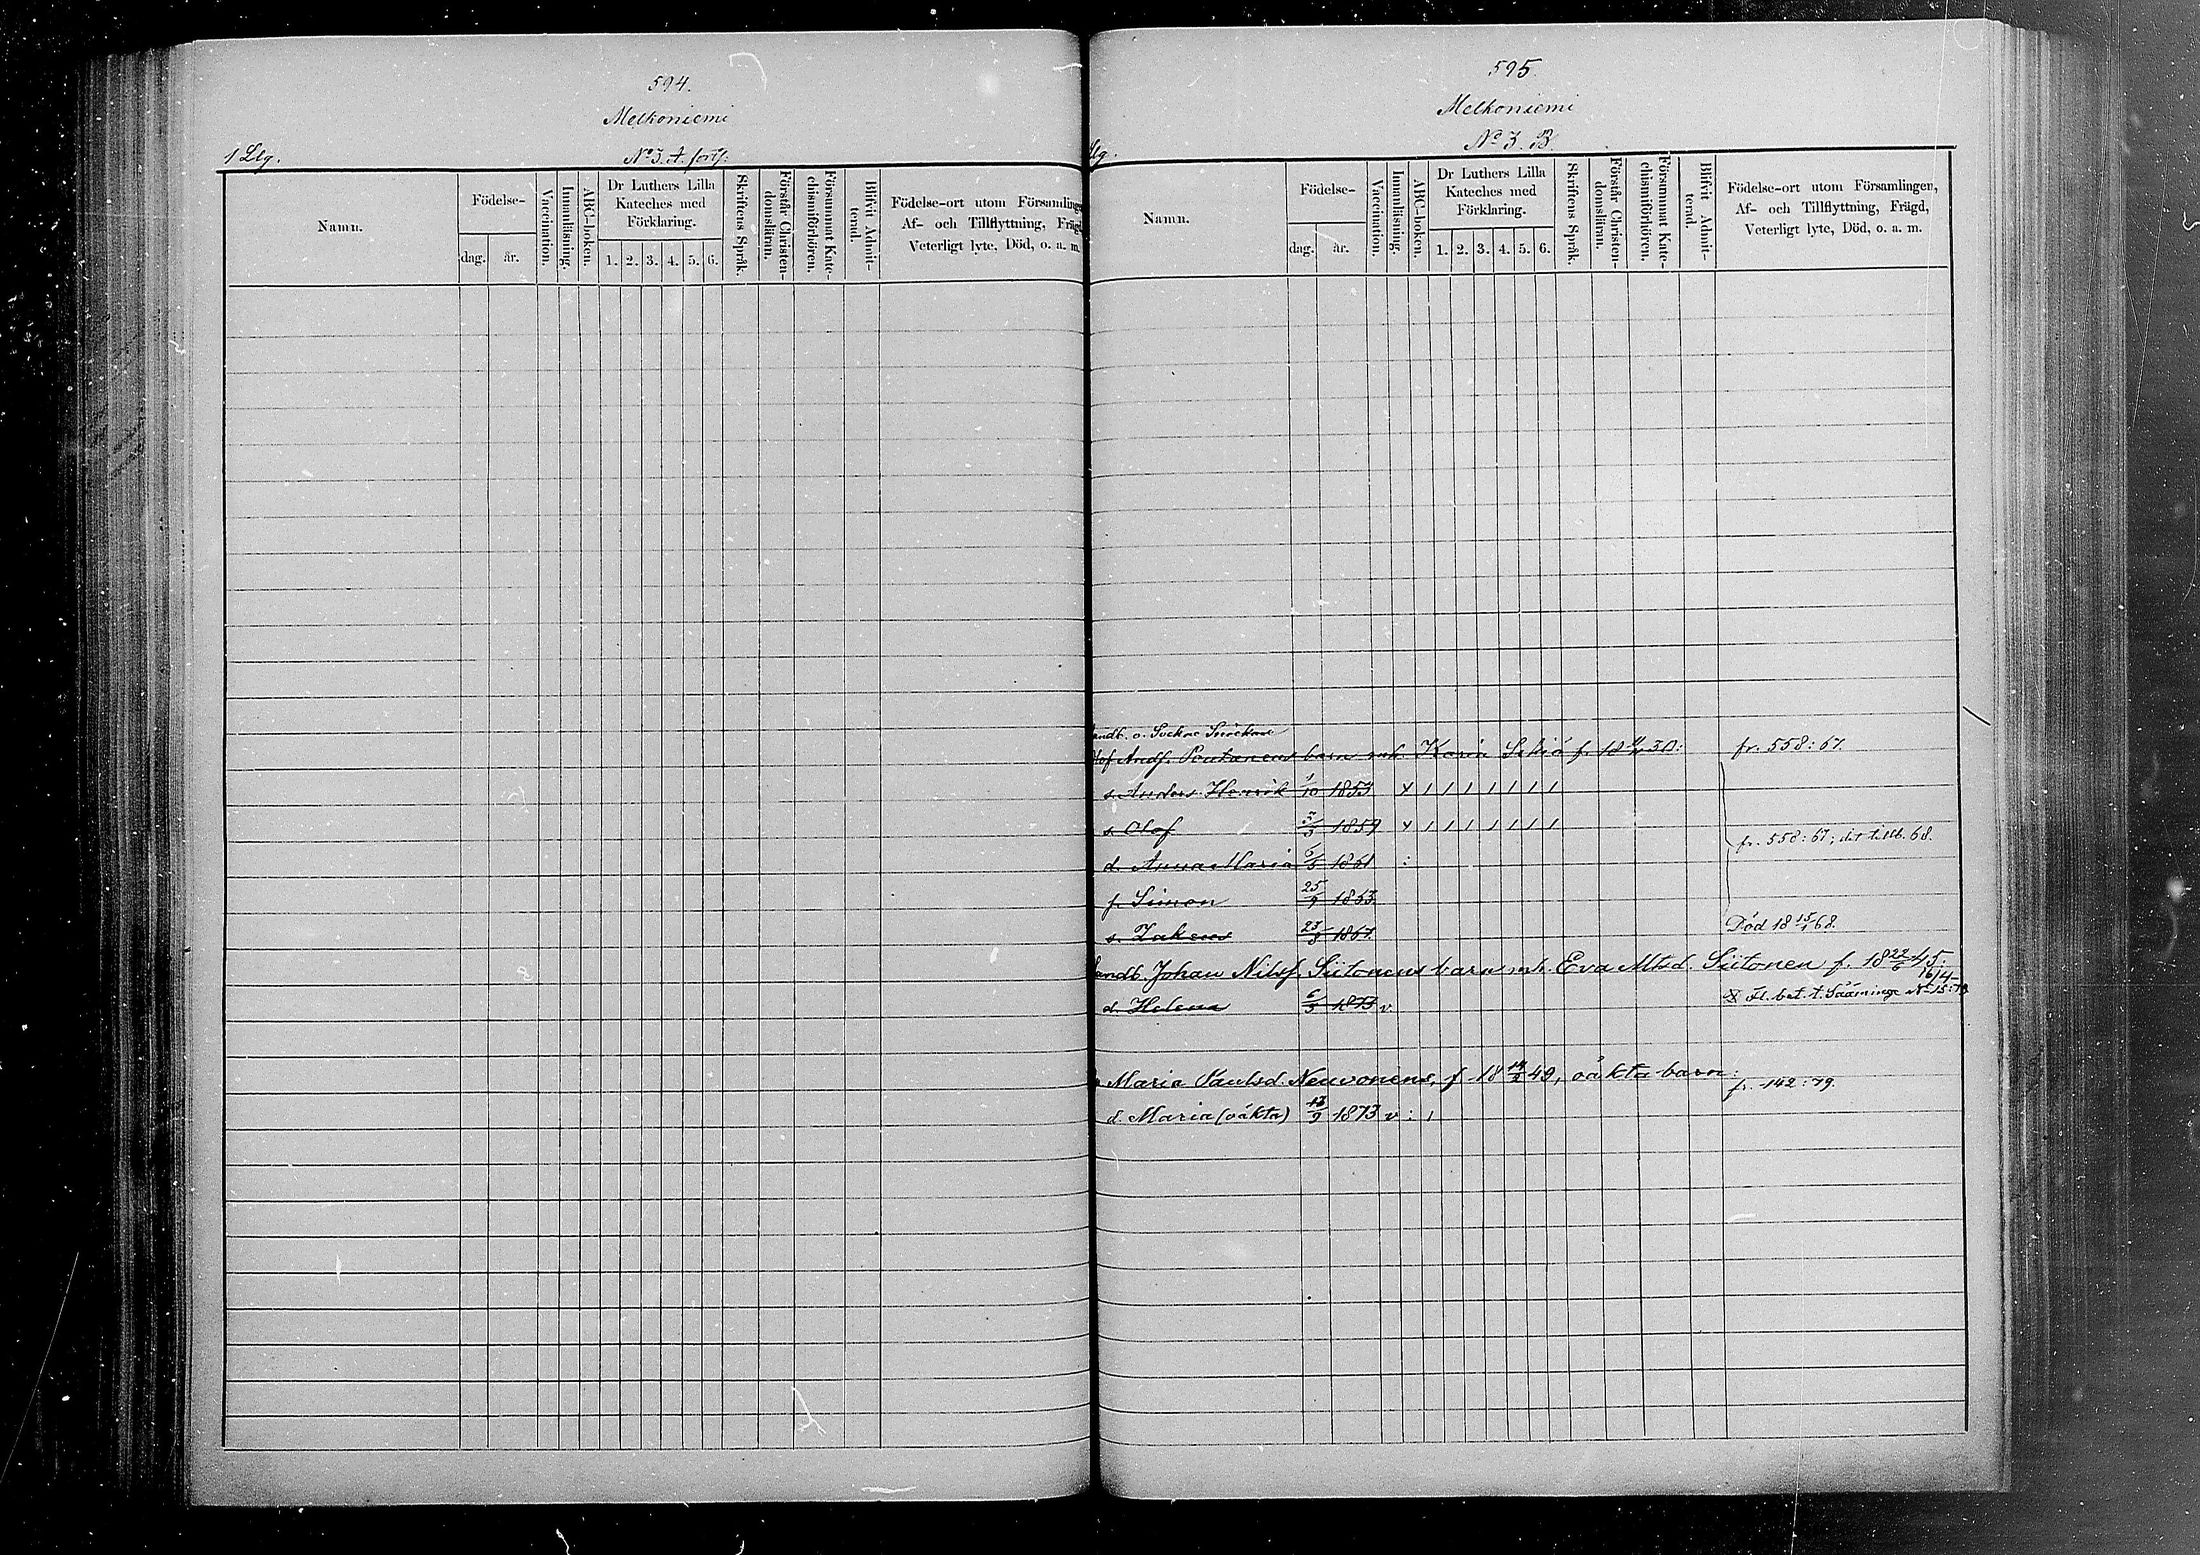 594.
Melkoniemi
1 Llg.
No 3. A. forts:
Namn.
Födelse-
dag.
år.
Vaccination.
Innanläsning.
ABC-boken.
Dr Luthers Lilla
Kateches med
Förklaring.
1. 2. 3. 4. 5. 6.
Skriftens Språk.
Förstår Christen-
domsläran.
Försummat Kate-
chismiförhören.
Blifvit Admit-
terad.
Födelse-ort utom Församlingen
Af- och Tillflyttning, Frägd,
Veterligt lyte, Död, o. a. m.
595.
Melkoniemi
No 3. B.
Llg.
Namn.
Födelse-
dag.
år.
Vaccination.
Innanläsning.
ABC-boken.
Dr Luthers Lilla
Kateches med
Förklaring.
1. 2. 3. 4. 5. 6.
Skriftens Språk.
Förstår Christen-
domsläran.
Försummat Kate-
chismiförhören.
Blifvit Admit-
terad.
Födelse-ort utom Församlingen,
Af- och Tillflyttning, Frägd,
Veterligt lyte, Död, o. a. m.
Olof Ands. barn mh. Karin f. 18 30: fr. 558:67.
s. Anders Henrik 1/10 1853
s. Olof 3/3 1859
fr. 558:67; det tillb. 68.
d. Anna Maria 6/5 1861
s. Simon 25/9 1863
s. Zakeus 23/8 1867. Död 18 15/1 68.
Landb. Johan Nilss. Siitonens barn mh. Eva Mtsd. Siitonen f. 18 22/6 45:
d. Helena 6/3 1873 v. Fl. bet. t. Sääminge No 15: 16/4 79
Maria Paulsd. Neuvonens, f 18 14/2 49, oäkta barn: fr. 142:79.
d. Maria (oäkta) 13/9 1873 v : 1